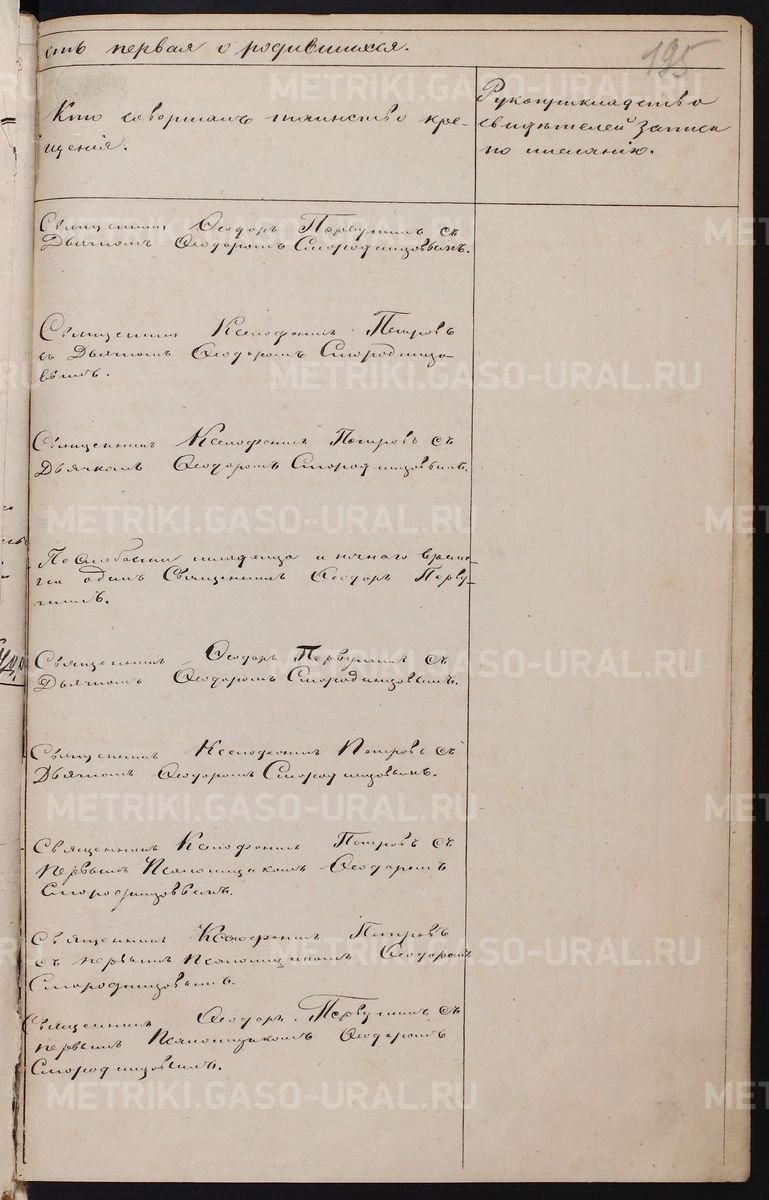 сть первая о родившихся.
195
Кто совершалъ таинство кре-
щенія.
Рукоприкладство
свидѣтелей записи
по желанію.
Священникъ Ѳеодоръ Первушинъ съ
Дьячкомъ Ѳеодоромъ Смородинцовымъ.
Священникъ Ксенофонтъ Петровъ
съ Дьячкомъ Ѳеодоромъ Смородинцо
вымъ.
Священникъ Ксенофонтъ Петровъ съ
Дьячкомъ Ѳеодоромъ Смородинцовымъ.
По слабости младенца и ночнаго време-
ни одинъ Священникъ Ѳеодоръ Перву-
шинъ.
Священникъ Ѳеодоръ Первушинъ съ
Дьячкомъ Ѳеодоромъ Смородинцовымъ.
Священникъ Ксенофонтъ Петровъ съ
Дьячкомъ Ѳеодоромъ Смородинцовымъ.
Священникъ Ксенофонтъ Петровъ съ
первымъ Псаломщикомъ Ѳеодоромъ
Смородинцовымъ.
Священникъ Ксенофонтъ Петровъ
съ первымъ Псаломщикомъ Ѳеодоромъ
Смородинцовымъ.
Священникъ Ѳеодоръ Первушинъ съ
первымъ Псаломщикомъ Ѳеодоромъ
Смородинцовымъ.
METRIKI.GASO-URAL.RU